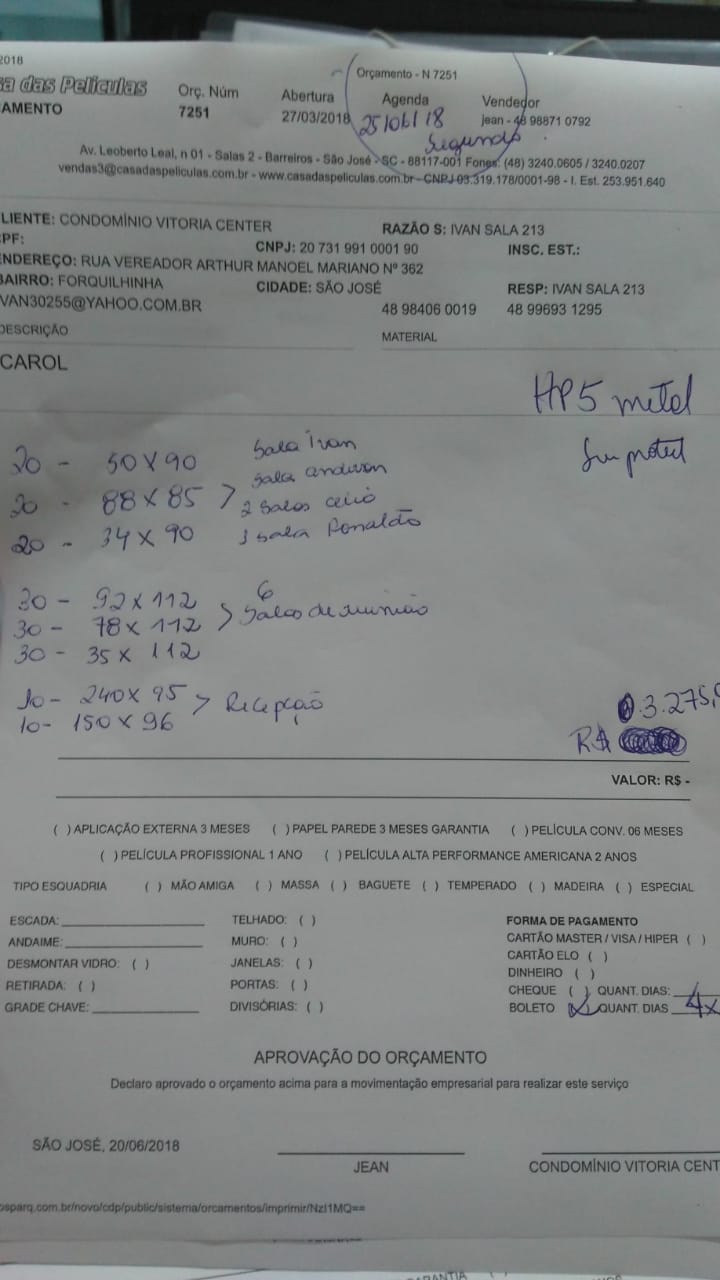 2018
Orçamento - N 7251
sa das Películas
Orç. Núm
Abertura
Agenda
Vendedor
AMENTO
7251
27/03/2018
25/06/18
jean - 48 98871 0792
Segunda
Av. Leoberto Leal, n 01 - Salas 2 - Barreiros - São José - SC - 88117-001 Fones: (48) 3240.0605 / 3240.0207
vendas3@casadaspeliculas.com.br - www.casadaspeliculas.com.br - CNPJ 03.319.178/0001-98 - I. Est. 253.951.640
LIENTE: CONDOMÍNIO VITORIA CENTER
RAZÃO S: IVAN SALA 213
PF:
CNPJ: 20 731 991 0001 90
INSC. EST.:
NDEREÇO: RUA VEREADOR ARTHUR MANOEL MARIANO Nº 362
BAIRRO: FORQUILHINHA
CIDADE: SÃO JOSÉ
RESP: IVAN SALA 213
VAN30255@YAHOO.COM.BR
48 98406 0019
48 99693 1295
DESCRIÇÃO
MATERIAL
CAROL
HP5 metal
Sun protect
20 - 50 X 90
Sala Ivan
Sala
20 - 88 X 85 >
2 Salas celio
20 - 34 X 90
1 sala Ronaldo
30 - 92 X 112
6
30 - 78 X 112 > Salas de reunião
30 - 35 X 112
10 - 240 X 95 > Recepção
10 - 150 X 96
3.275,0
R$
VALOR: R$ -
( ) APLICAÇÃO EXTERNA 3 MESES ( ) PAPEL PAREDE 3 MESES GARANTIA ( ) PELÍCULA CONV. 06 MESES
( ) PELÍCULA PROFISSIONAL 1 ANO ( ) PELÍCULA ALTA PERFORMANCE AMERICANA 2 ANOS
TIPO ESQUADRIA ( ) MÃO AMIGA ( ) MASSA ( ) BAGUETE ( ) TEMPERADO ( ) MADEIRA ( ) ESPECIAL
ESCADA:
TELHADO: ( )
FORMA DE PAGAMENTO
ANDAIME:
MURO: ( )
CARTÃO MASTER / VISA / HIPER ( )
DESMONTAR VIDRO: ( )
JANELAS: ( )
CARTÃO ELO ( )
RETIRADA: ( )
PORTAS: ( )
DINHEIRO ( )
GRADE CHAVE:
DIVISÓRIAS: ( )
CHEQUE ( ) QUANT. DIAS:
BOLETO (X) QUANT. DIAS 4x
APROVAÇÃO DO ORÇAMENTO
Declaro aprovado o orçamento acima para a movimentação empresarial para realizar este serviço
SÃO JOSÉ, 20/06/2018
JEAN
CONDOMÍNIO VITORIA CENT
osparq.com.br/novo/cdp/public/sistema/orcamentos/imprimir/NzI1MQ==